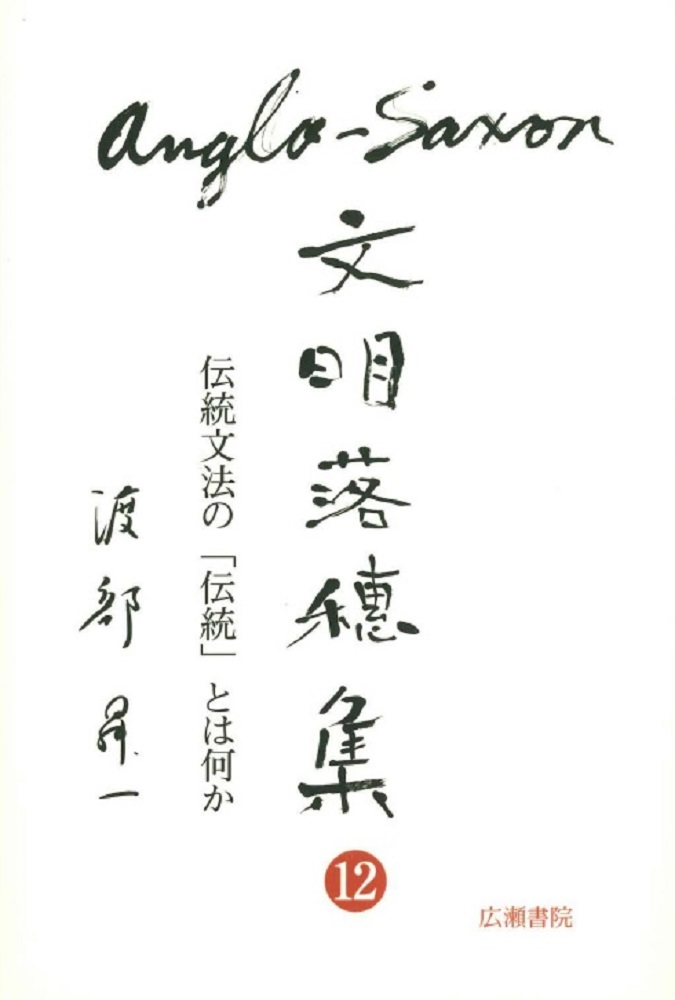 Anglo-Saxon
文明落穂集
伝統文法の「伝統」とは何か
渡部昇一
12
広瀬書院